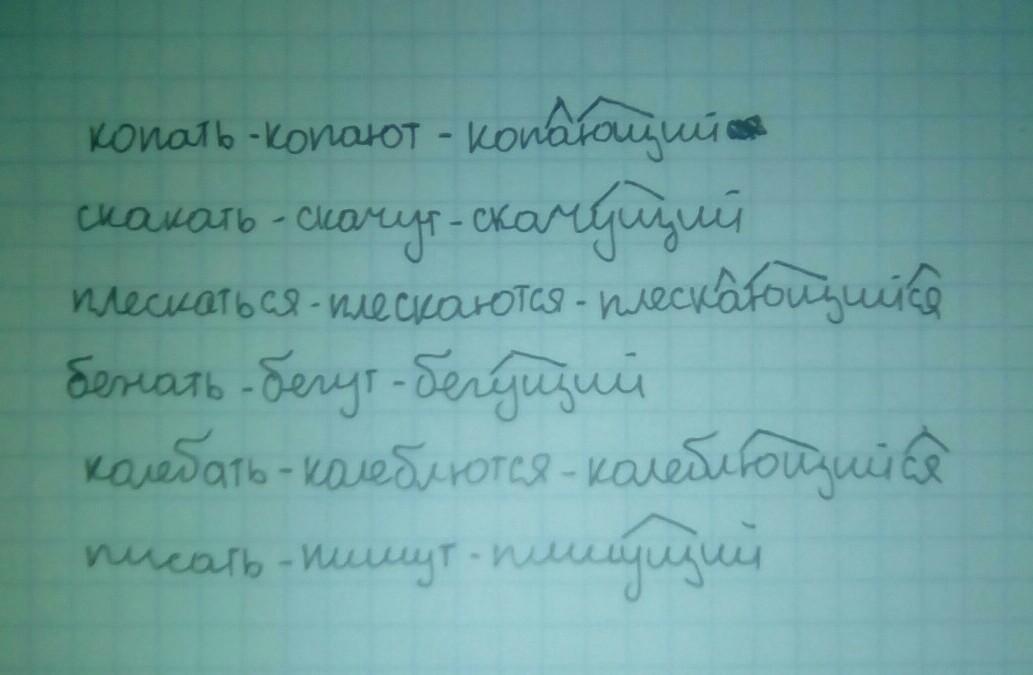 копать - копают - копающий
скакать - скачут - скачущий
плескаться - плескаются - плескающийся
бежать - бегут - бегущий
колебать - колеблются - колеблющийся
писать - пишут - пишущий